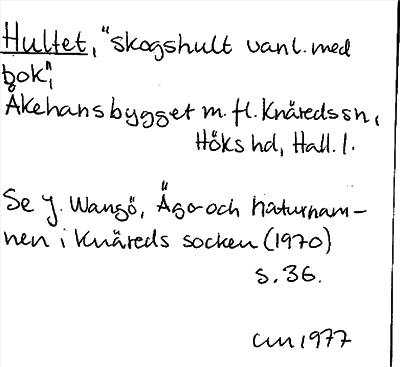 Hultet, "skogshult vanl. med
bok",
Åkehansbygget m. fl. Knäreds sn,
Höks hd, Hall. l.
Se J. Wangö, Ägo- och naturnam-
nen i Knäreds socken (1970)
s. 36.
cm 1977